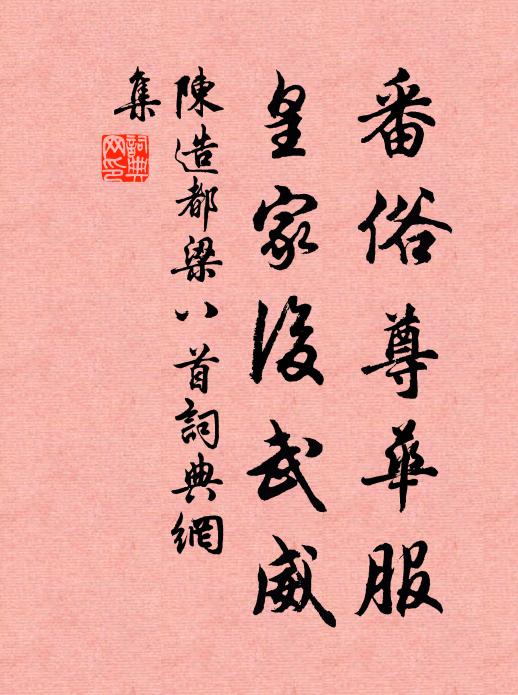 番俗尊華服
皇家後武威
陳造都梁八首詞典網
集
詞典
网印